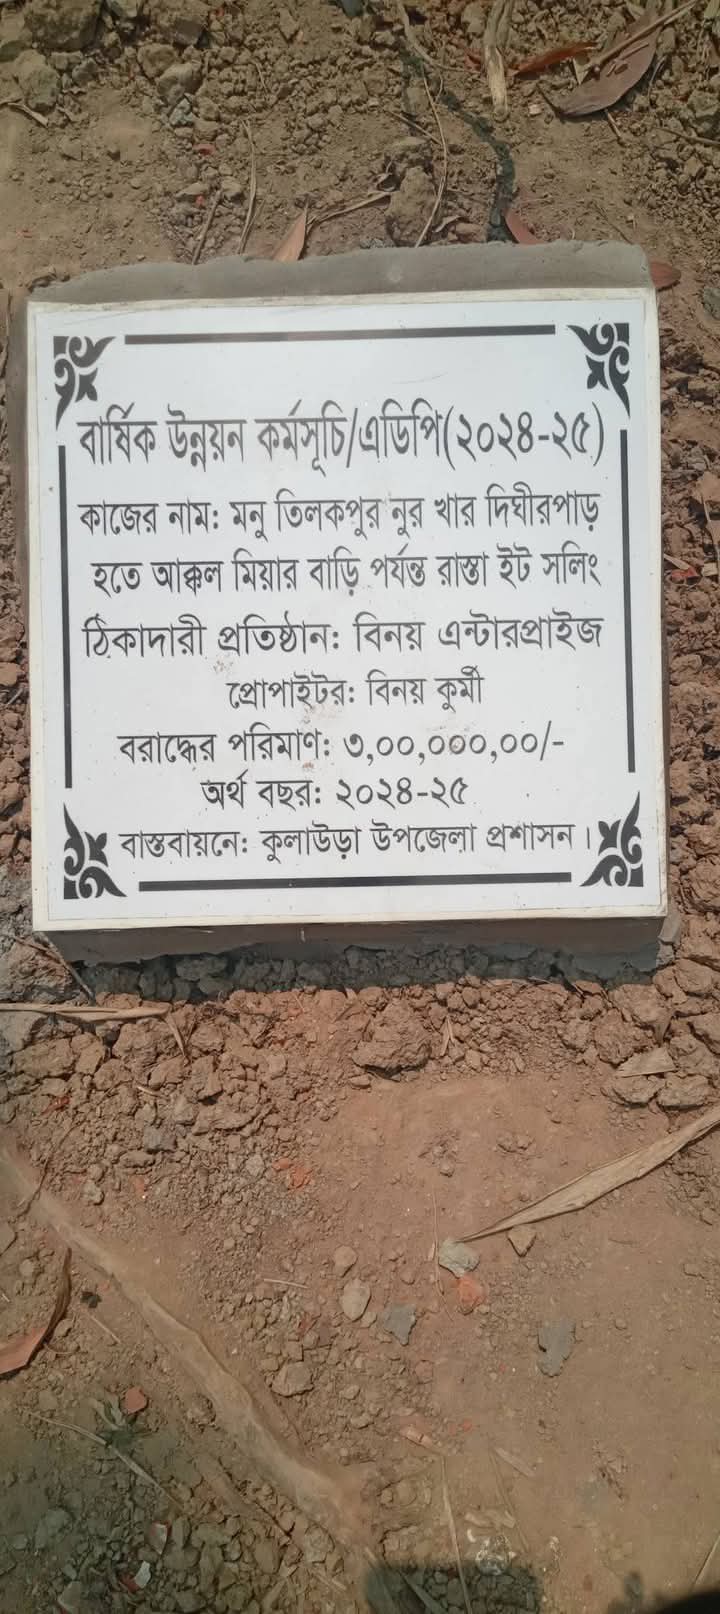 বার্ষিক উন্নয়ন কর্মসূচি/এডিপি(২০২৪-২৫)
কাজের নাম: মনু তিলকপুর নুর খার দিঘীরপাড়
হতে আক্কল মিয়ার বাড়ি পর্যন্ত রাস্তা ইট সলিং
ঠিকাদারী প্রতিষ্ঠান: বিনয় এন্টারপ্রাইজ
প্রোপাইটর: বিনয় কুর্মী
বরাদ্ধের পরিমাণ: ৩,০০,০০০,০০/-
অর্থ বছর: ২০২৪-২৫
বাস্তবায়নে: কুলাউড়া উপজেলা প্রশাসন।